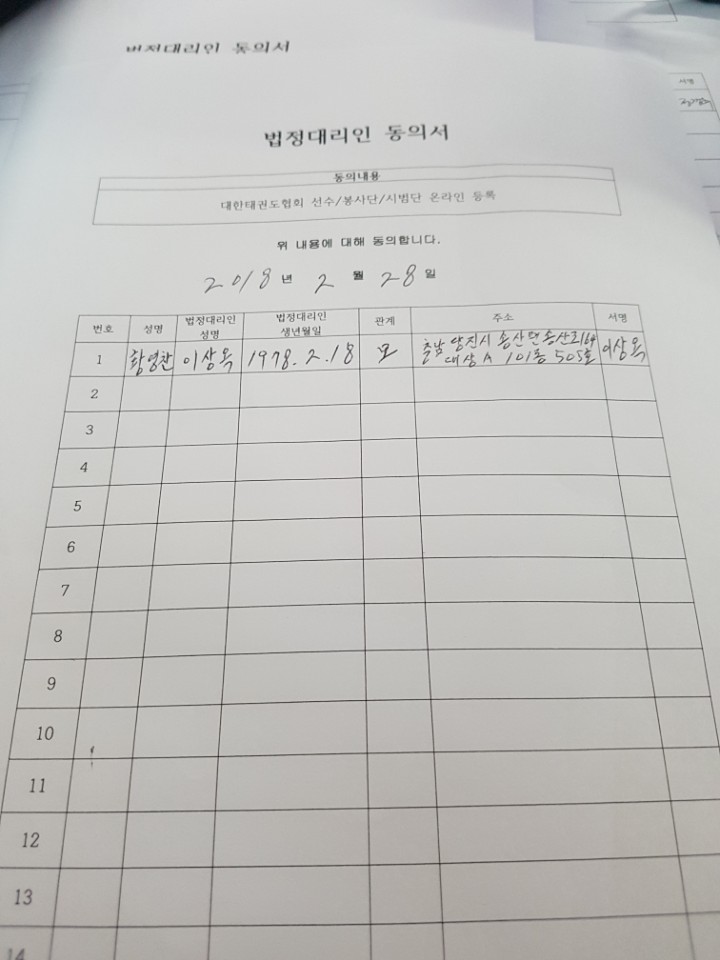 법정대리인 동의서
법정대리인 동의서
동의내용
대한태권도협회 선수/봉사단/시범단 온라인 등록
위 내용에 대해 동의합니다.
2018년 2월 28일
번호 성명 법정대리인 성명 법정대리인 생년월일 관계 주소 서명
1 황영찬 이상옥 1978.2.18 모 충남 당진시 송산면 송산로164 이상옥
대상A 101동 505호
2
3
4
5
6
7
8
9
10
11
12
13
14
서명